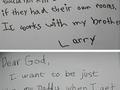 if they had their own rooms.
It works with my brother
Larry
Dear God,
I want to be just
my Daddy when I get